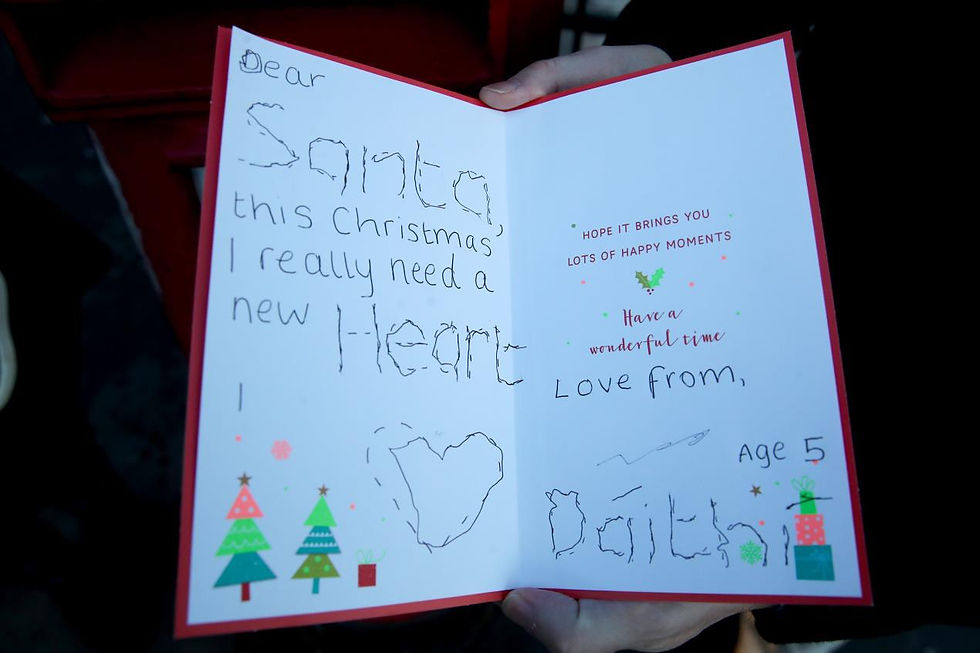 Dear
Santa,
this Christmas
I really need a
new Heart
I
HOPE IT BRINGS YOU
LOTS OF HAPPY MOMENTS
Have a
wonderful time
Love from,
Age 5
Dáithí